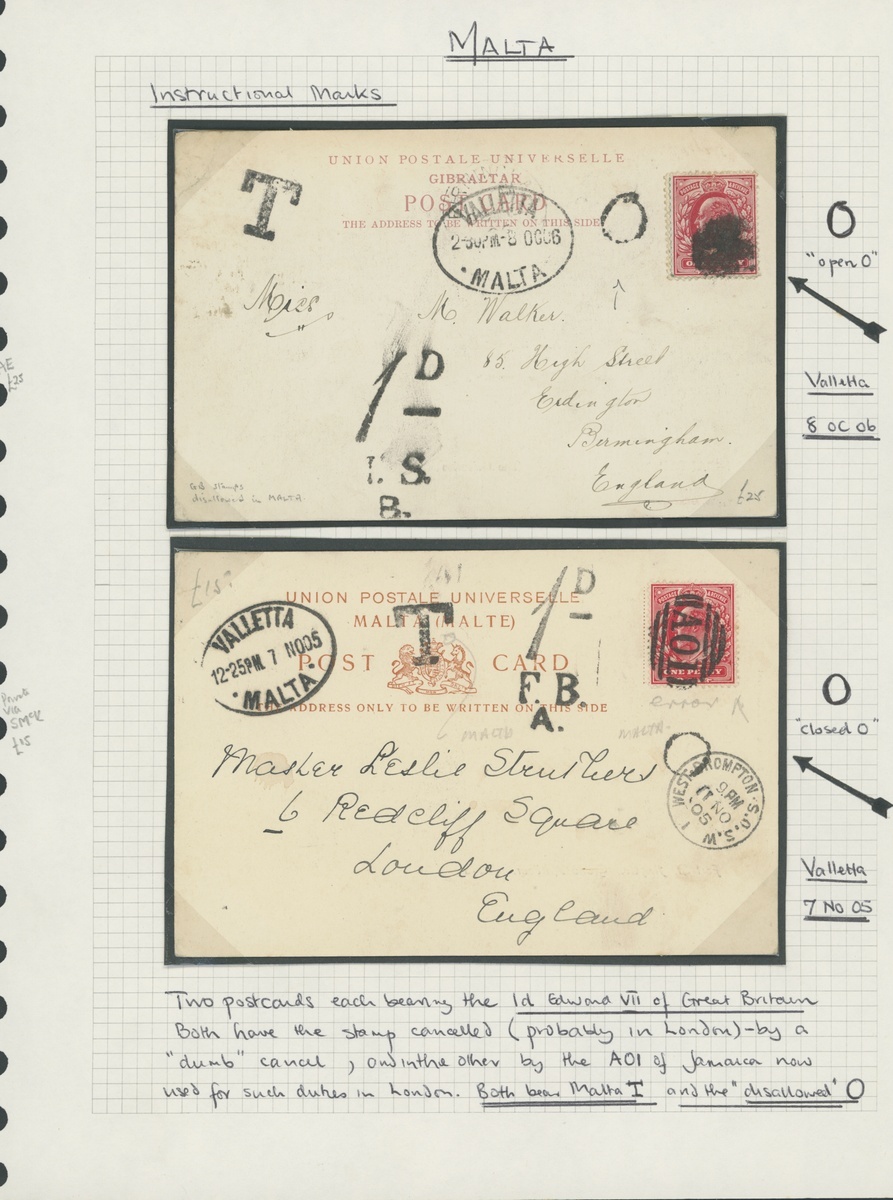 MALTA
Instructional Marks
UNION POSTALE UNIVERSELLE
GIBRALTAR
POST CARD
THE ADDRESS TO BE WRITTEN ON THIS SIDE
T
VALLETTA
2-30PM-8 OC06
MALTA
O
POSTAGE
Miss M. Walker.
85. High Street
Erdington
Birmingham.
England
1D
I.S.
B.
GB stamps
disallowed in MALTA.
£25
O
"open O"
Valletta
8 OC 06
£25
£15
UNION POSTALE UNIVERSELLE
MALTA (MALTE)
POST CARD
ADDRESS ONLY TO BE WRITTEN ON THIS SIDE
VALLETTA
12-25PM. 7 NO05
MALTA
T
1D
F.B.
A.
A01
ONE PENNY
error
MALTA
MALTA.
O
WEST BROMPTON S.O.S.W
9PM
NO
05
Master Leslie Struthers
6 Redcliff Square
London
England
O
"closed O"
Valletta
7 NO 05
via
£15
Two postcards each bearing the 1d Edward VII of Great Britain
Both have the stamp cancelled (probably in London)-by a
"dumb" cancel, and in the other by the A01 of Jamaica now
used for such duties in London. Both bear Malta T and the "disallowed" O